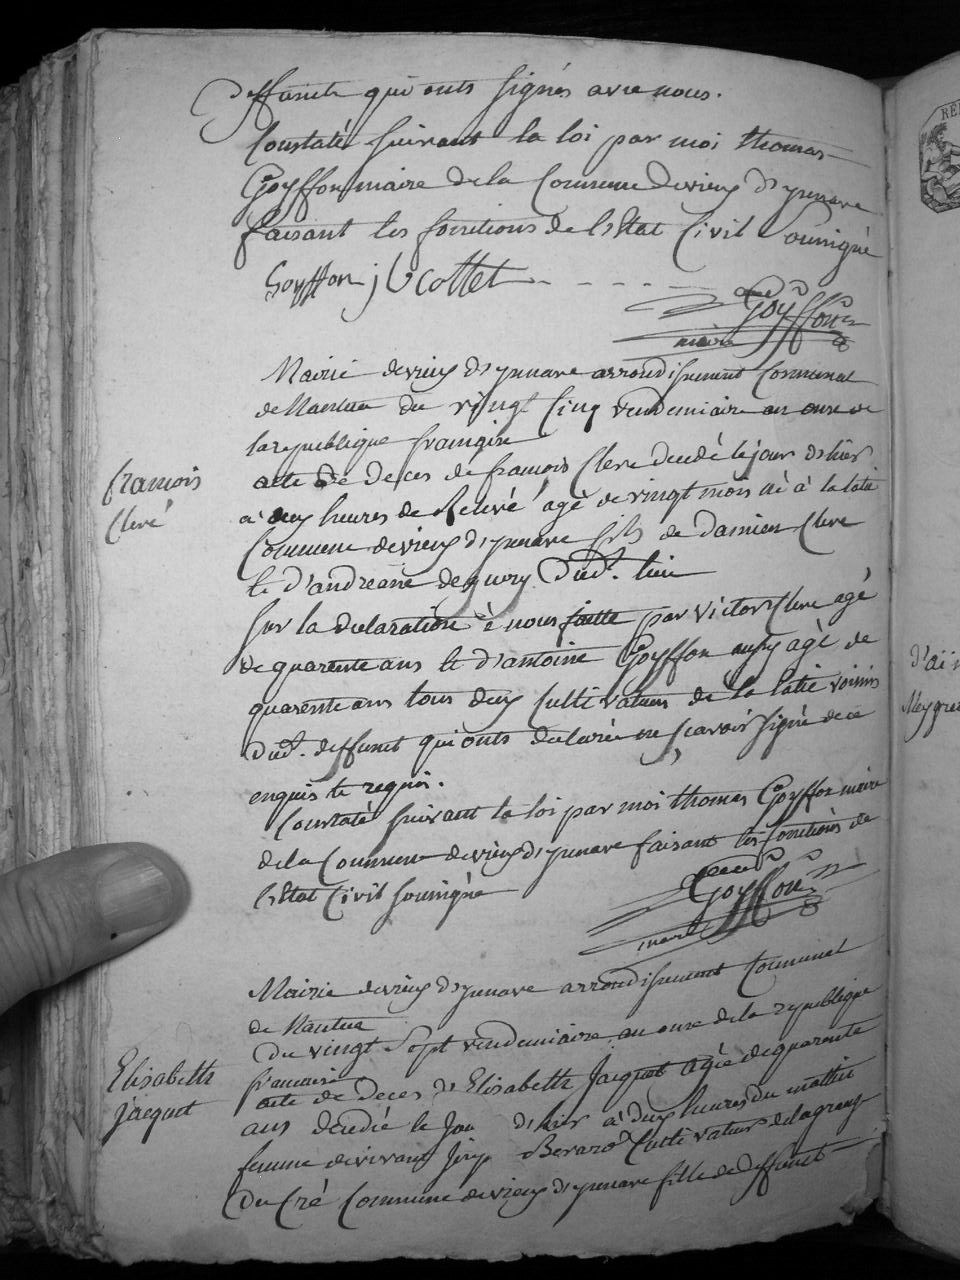 deffunte qui onts signés avec nous.
Constaté suivant la loi par moi thomas
Goyffon maire de la Commune de vieux d'yzenave
faisant les fonctions de l'Etat Civil soussigné
Goyffon j B Collet
Goyffon
maire
Mairie de vieux d'yzenave arrondissement Communal
de Nantua du vingt Cinq vendemiaire an onze de
la republique françoise
acte de deces de françois Clerc decedé le jour d'hier
à deux heures de Relevé agé de vingt mois né à la latié
Commune de vieux d'yzenave fils de Damien Clerc
le d'andreanne deguory dud. lieu
sur la declaration à nous faitte par victor Clerc agé
de quarente ans le d'antoine Goyffon aussy agé de
quarente ans tous deux Cultivateurs de la latié voisins
dud. deffunt qui onts declaré ne scavoir signé de ce
enquis le requis.
Constaté suivant la loi par moi thomas Goyffon maire
de la Commune de vieux d'yzenave faisant les fonctions de
l'Etat Civil soussigné
Goyffon
maire
françois
Clerc
Mairie de vieux d'yzenave arrondissement Communal
de Nantua
Du vingt Sept vendemiaire an onze de la republique
francaise
acte de deces d'Elisabeth Jacquet agée de quarente
ans decedé le Jour d'hier à deux heures du mattin
femme de vivant Berard Cultivateur de la grange
Du Cré Commune de vieux d'yzenave fille de deffunt
Elisabeth
jacquet
RE
d'ai
Meygre